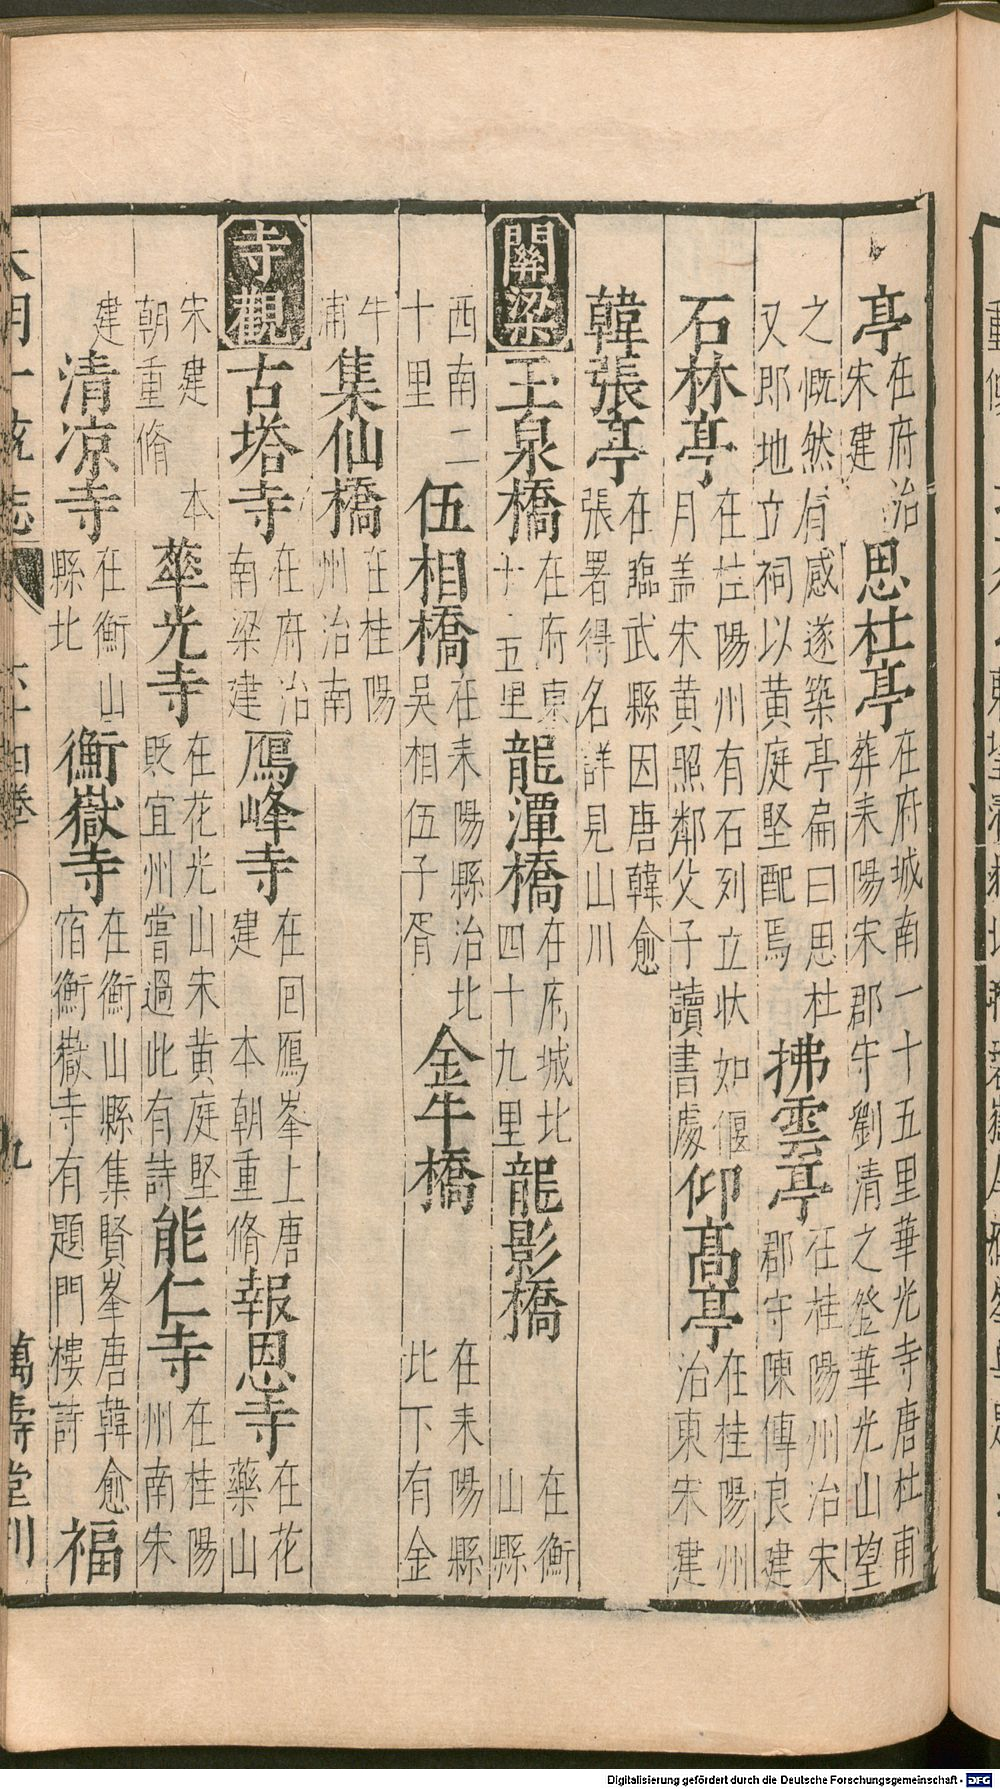 亭在府治宋建思杜亭在府城南一十五里華光寺唐杜甫葬耒陽宋郡守劉清之登華光山望
之慨然有感遂築亭扁曰思杜又即地立祠以黄庭堅配焉拂雲亭在桂陽州治宋郡守陳傅良建
石林亭在桂陽州有石列立狀如偃月盖宋黄照鄰父子讀書處仰高亭在桂陽州治東宋建
韓張亭在臨武縣因唐韓愈張署得名詳見山川
關梁玉泉橋在府東十五里龍潭橋在府城北四十九里龍影橋在衡山縣
西南二十里伍相橋在耒陽縣治北吳相伍子胥金牛橋在耒陽縣北下有金
牛甫集仙橋在桂陽州治南
寺觀古塔寺在府治南梁建鴈峰寺在回鴈峯上唐建本朝重脩報恩寺在花藥山
宋建本朝重脩華光寺在花光山宋黄庭堅貶宜州嘗過此有詩能仁寺在桂陽州南朱
建清凉寺在衡山縣北衡嶽寺在衡山縣集賢峯唐韓愈宿衡嶽寺有題門樓詩福
大明一統志 六十四卷 九 萬壽堂刊
Digitalisierung gefördert durch die Deutsche Forschungsgemeinschaft - DFG